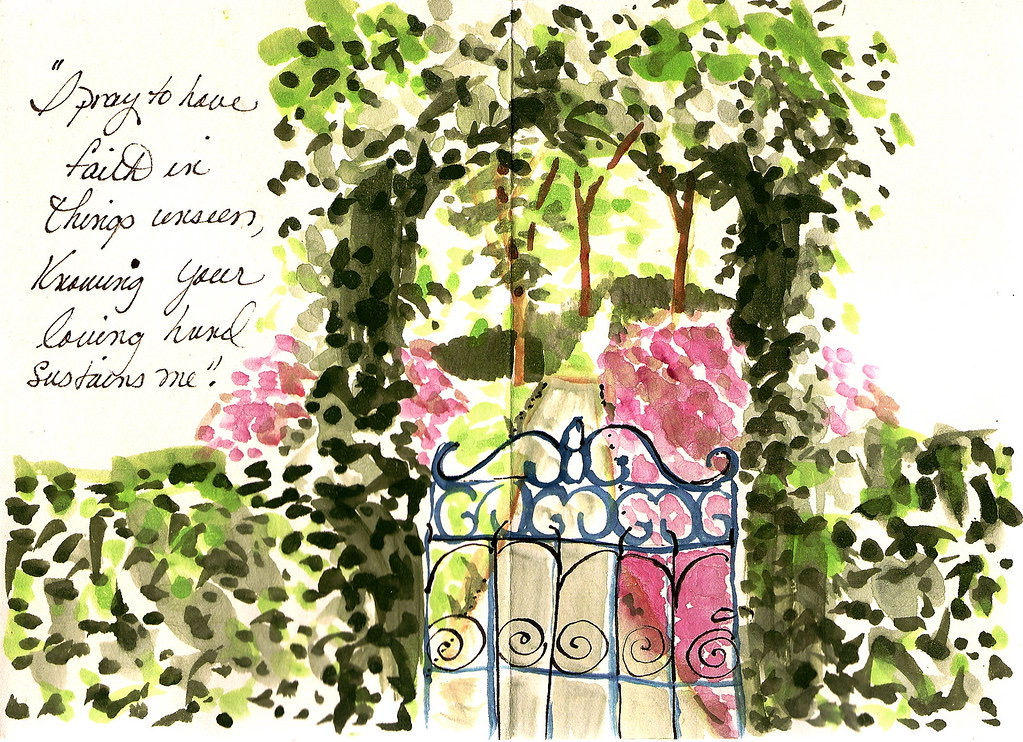 "I pray to have
faith in
things unseen,
Knowing your
loving hand
sustains me".